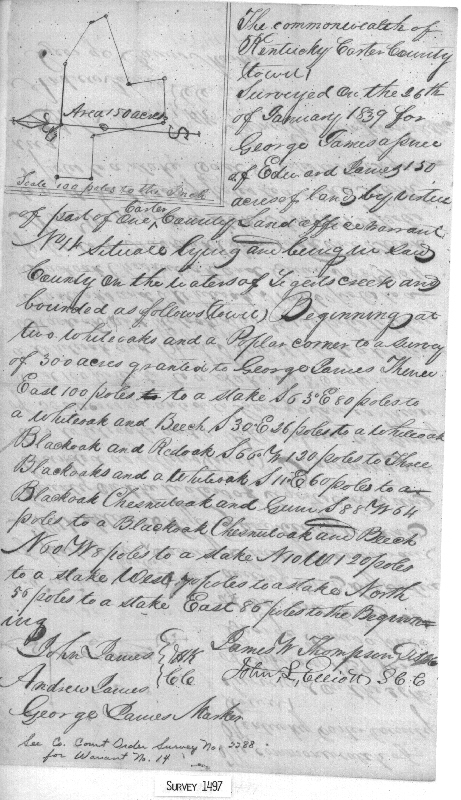 The commonwealth of
Kentucky Carter County
(towit)
Surveyed on the 26th
of January 1839 for
George James assinee
of Edward James 150
acres of land by virtue
Area 150 acres
S
Scale 100 poles to the Inch
of part of one Carter County Land office warrant
No 14 situate lying and being in said
County on the waters of Tigerts creek and
bounded as follows (towit) Beginning at
two whiteoaks and a Poplar corner to a survey
of 300 acres granted to George James Thence
East 100 poles to a stake S 65 E 80 poles to
a whiteoak and Beech S 30 E 26 poles to a whiteoak
Blackoak and Redoak S 60 W 120 poles to Three
Blackoaks and a whiteoak S 11 E 60 poles to a
Blackoak Chesnutoak and Gum S 88 W 64
poles to a Blackoak Chesnutoak and Beech
N 60 W 8 poles to a stake N 10 W 120 poles
to a stake West poles to a stake North
56 poles to a stake East 86 poles to the Beginn
ing
John James } C C James W Thompson
Andrew James John L. Elliott S. C. C
George James Marker
See Co. Court Order Survey No. 2288
for Warrant No. 14
SURVEY 1497